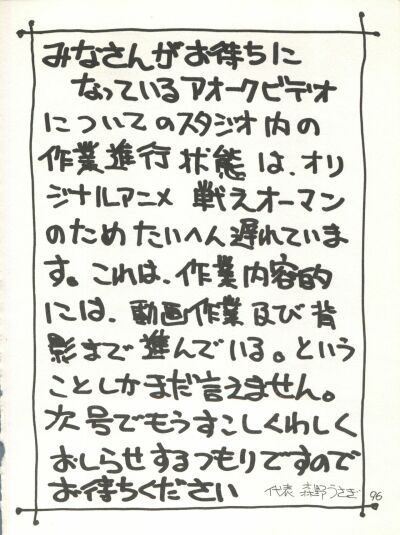 みなさんがお待ちに
なっているアオークビデオ
についてのスタジオ内の
作業進行状態は、オリ
ジナルアニメ 戦えオーマン
のためたいへん遅れていま
す。これは、作業内容的
には、動画作業及び背
影まで進んでいる。という
ことしかまだ言えません。
次号でもうすこしくわしく
おしらせするつもりですので
お待ちください
代表 森野うさぎ
96